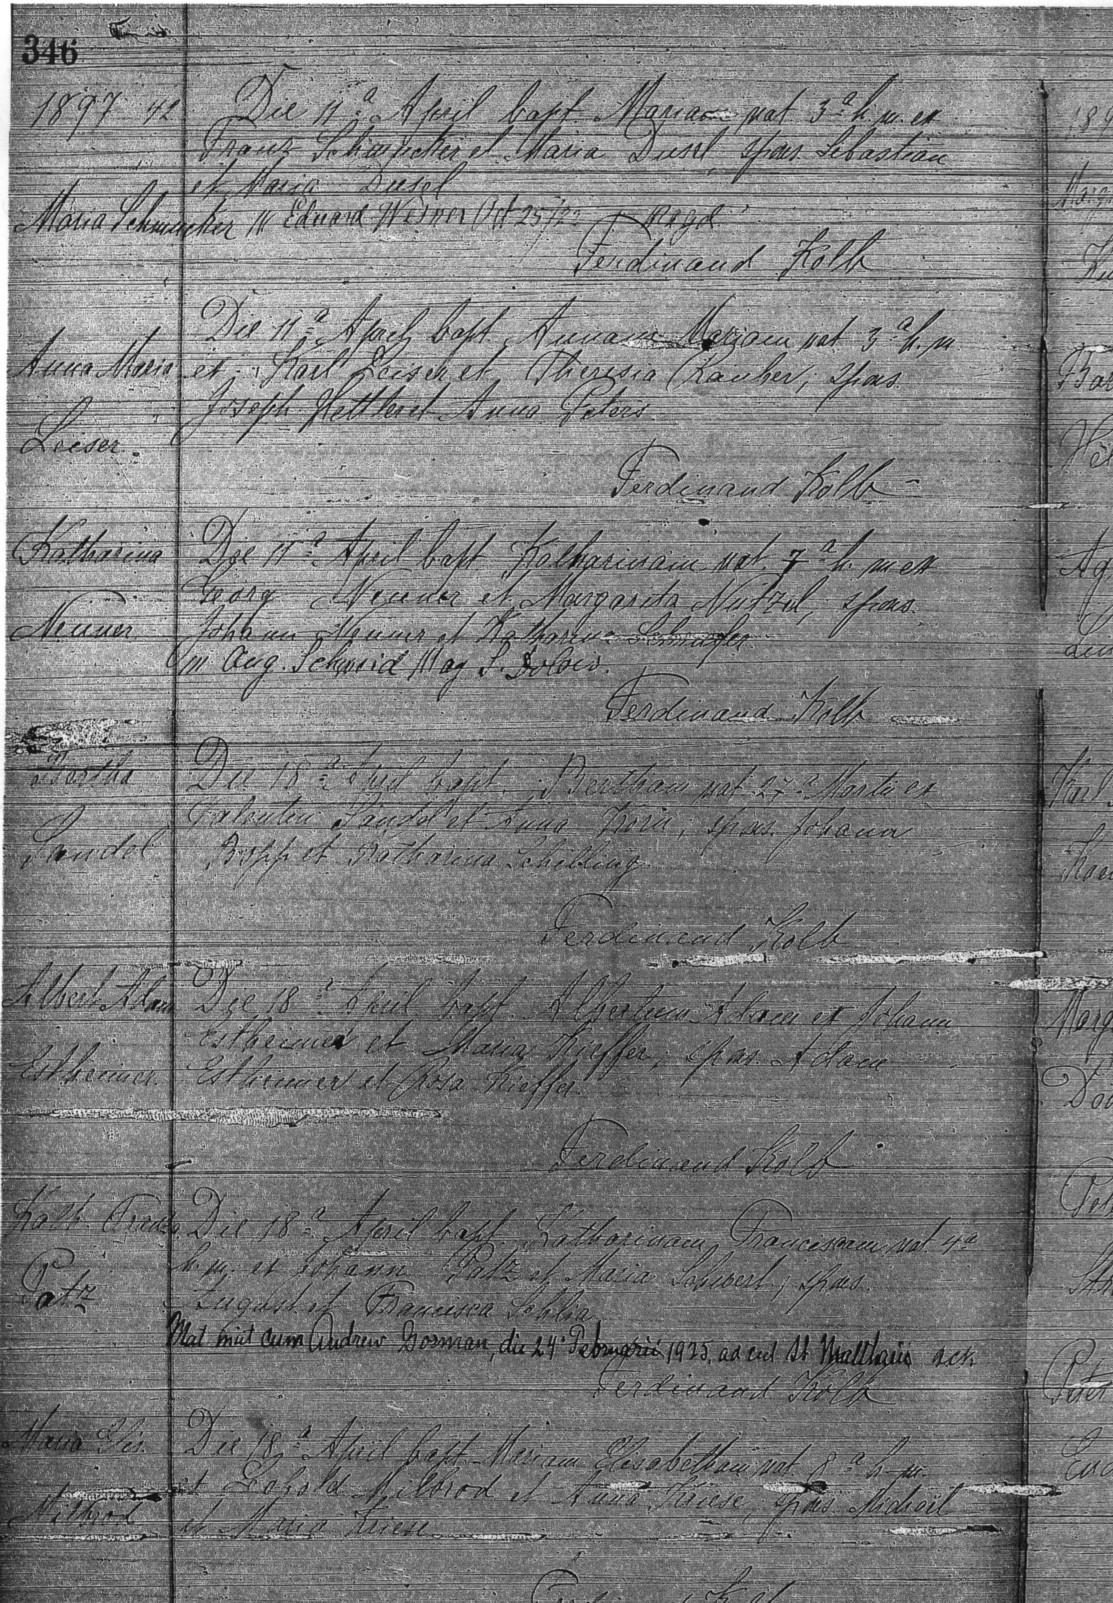 346
1897 42 Die 11a April bapt. Mariam nat 3a h. m. ex
Franz Schmucker et Maria Diesel, spons. Sebastian
et Maria Diesel
Maria Schmucker M Eduard Wesner Oct 25/22
Ferdinand Kolb
Die 11a April bapt. Annam Mariam nat 3a h. m
Anna Maria ex Karl Leiser et Theresia Rauher, spons.
Joseph Hettler et Anna Peters
Leiser.
Ferdinand Kolb
Katharina Die 11a April bapt. Katharinam nat. 7a h. m ex
Georg Neuner et Margarita Nützel, spons.
Neuner Johann Neuner et Katharina
m Aug. Schmid May
Ferdinand Kolb
Bertha Die 18a April bapt. Bertham nat 27a Martii ex
Valentin Sandel et Anna Horn, spons. Johann
Sandel Bopp et Katharina Schilling
Ferdinand Kolb
Albert Adam Die 18a April bapt. Albertum Adam ex Johann
Estheimer et Maria Kieffer, spons. Adam
Estheimer Estheimer et Rosa Kieffer
Ferdinand Kolb
Kath. Franza Die 18a April bapt. Katharinam Franciscam nat. 4a
h. m. ex Johann Patz et Maria Schwert, spons.
Patz August et Francisca Schlia
Mat init cum Andrew Gorman, die 24 Februarii 1925, ad eccl St Matthaei
Ferdinand Kolb
Maria Elis. Die 18a April bapt. Mariam Elisabetham nat 8a h. m.
ex Leopold Milbrod et Anna Kriese, spons Michael
Milbrod et Maria Kriese
Ferdinand Kolb